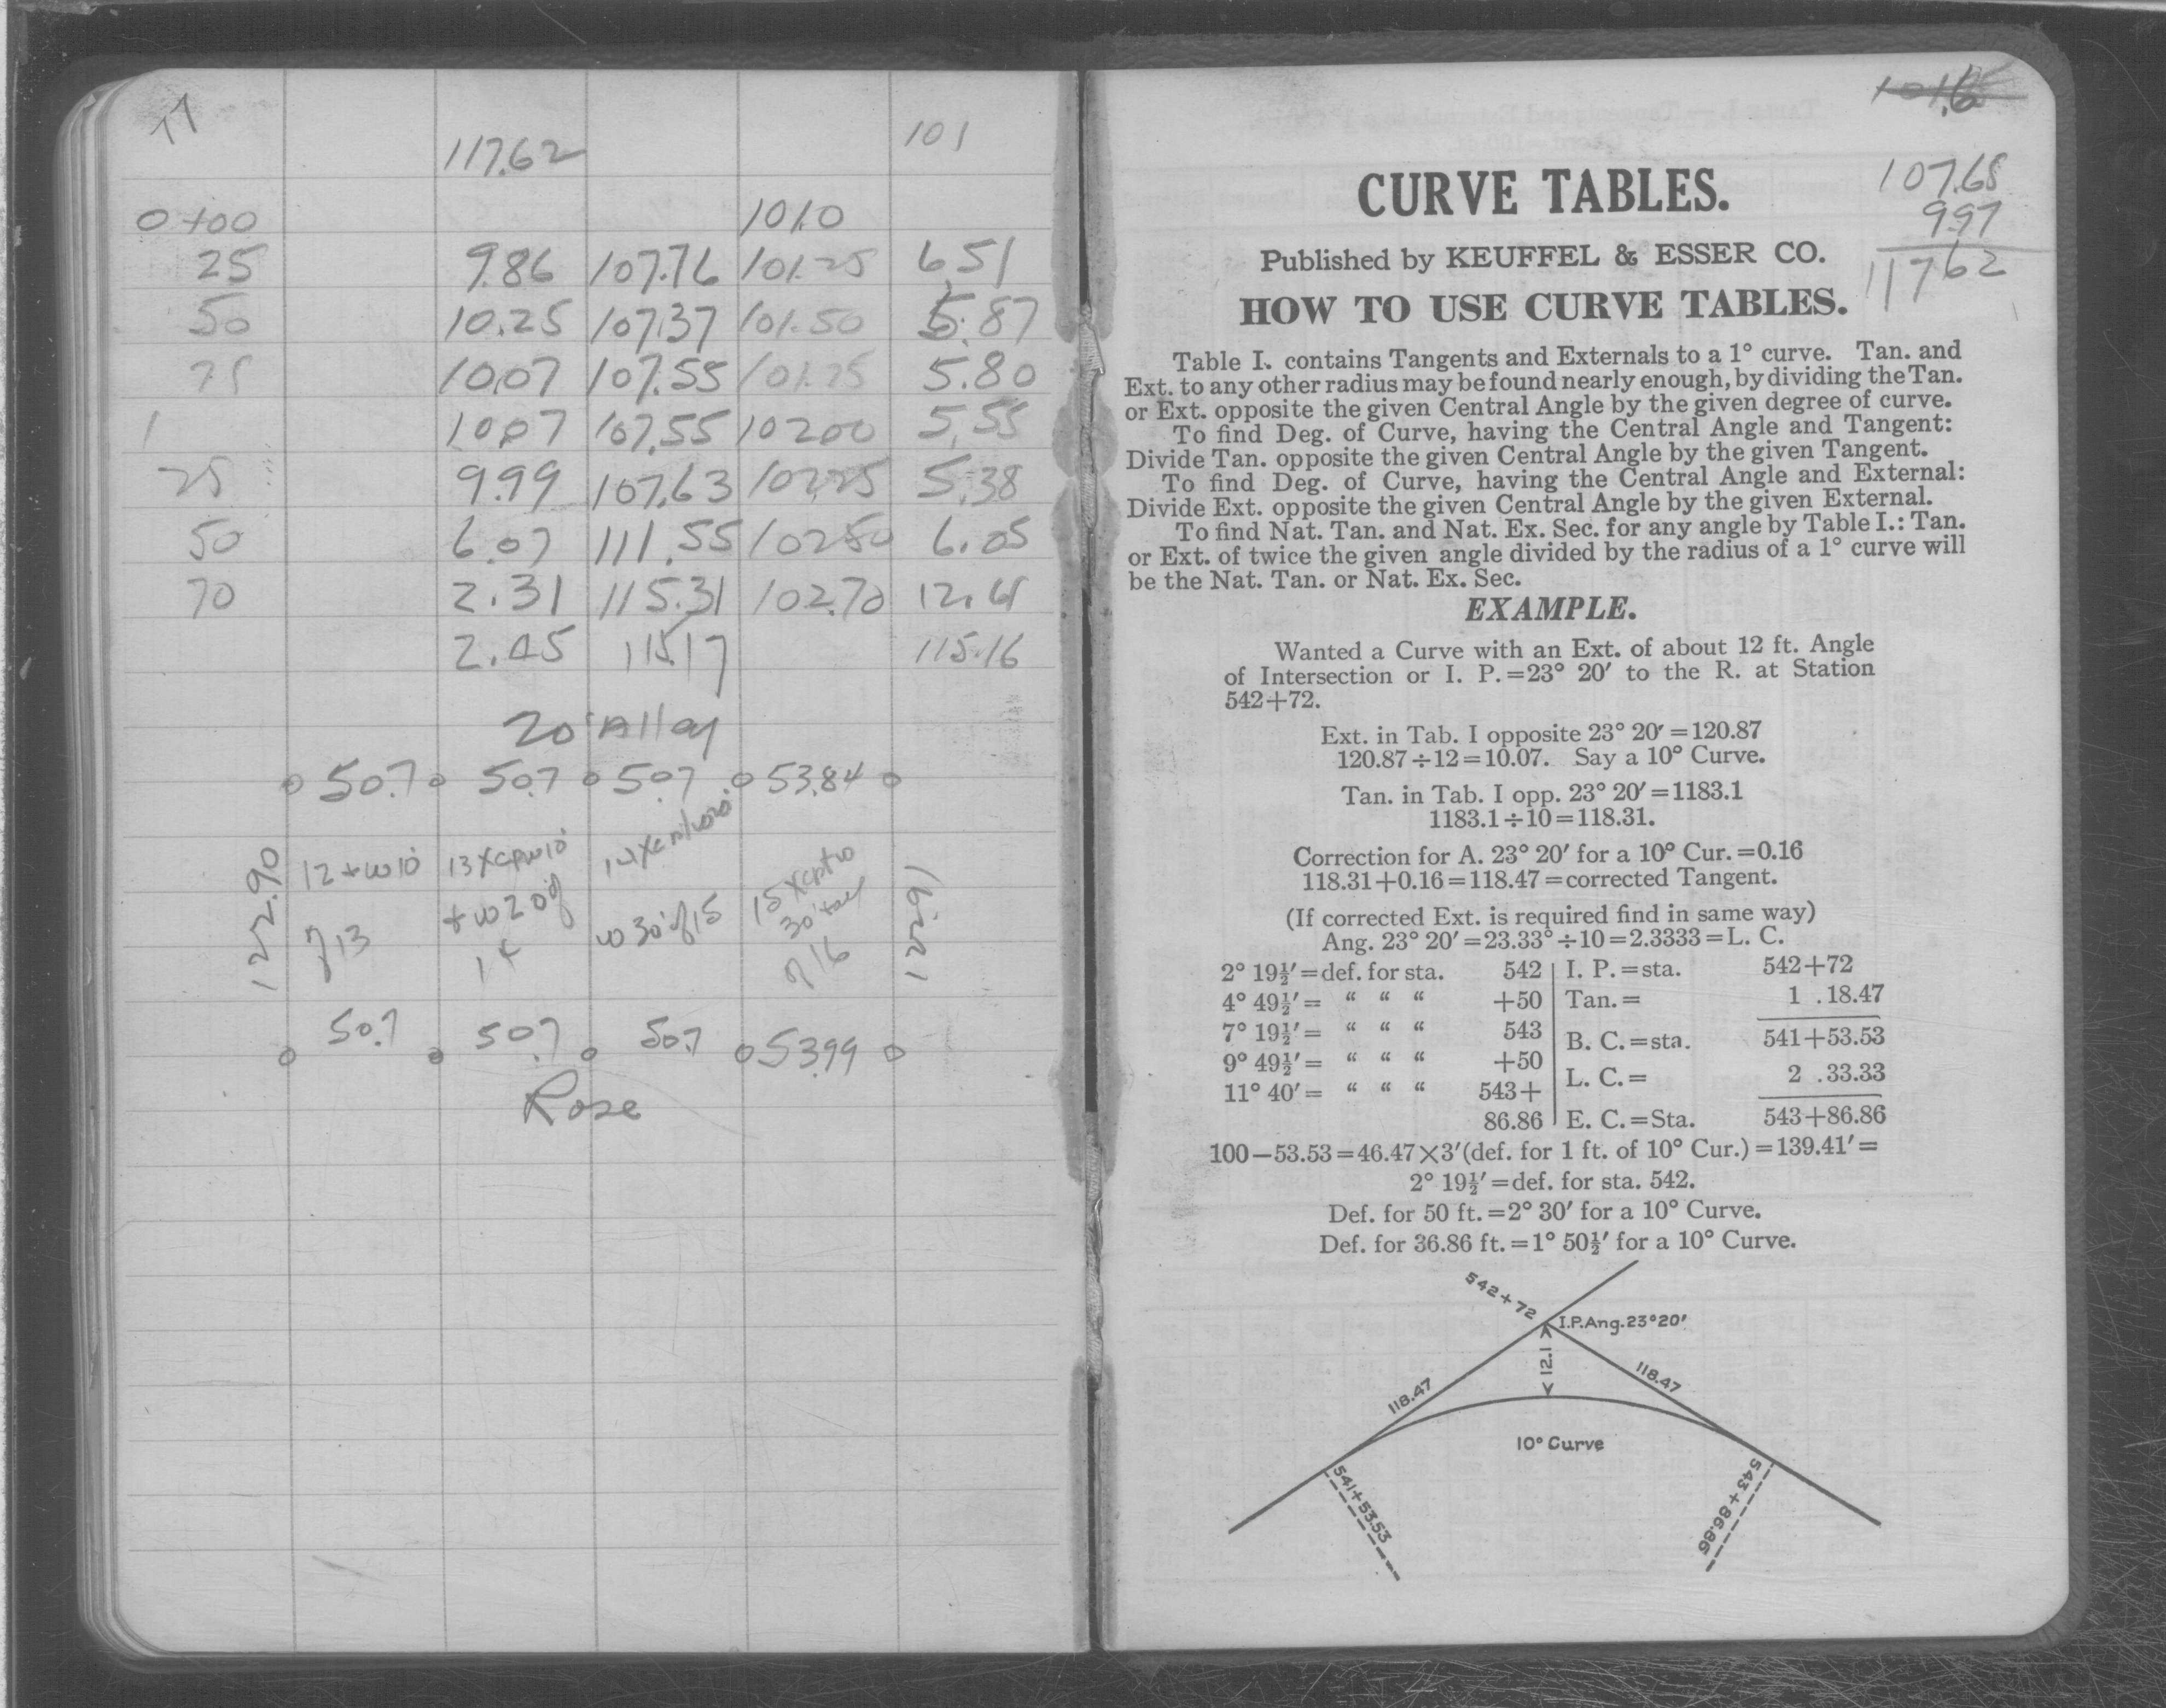 77
117.62 101
0+00 101.0
25 9.86 107.76 101.25 6.51
50 10.25 107.37 101.50 5.87
75 10.07 107.55 101.75 5.80
1 10.07 107.55 102.00 5.55
25 9.99 107.63 102.25 5.38
50 6.07 111.55 102.50 6.05
70 2.31 115.31 102.70 12.61
2.45 115.17 115.16
20' Alley
50.7 50.7 50.7 53.84
122.90
12 + w 10'
of 13
13 Xcp w 10'
+ w 20' of
14
w 30' of 15
15 Xcpt w
30' +
of 16
122.91
50.7 50.7 50.7 53.99
Rose
101.6
107.65
9.97
117.62
CURVE TABLES.
Published by KEUFFEL & ESSER CO.
HOW TO USE CURVE TABLES.
Table I. contains Tangents and Externals to a 1° curve. Tan. and
Ext. to any other radius may be found nearly enough, by dividing the Tan.
or Ext. opposite the given Central Angle by the given degree of curve.
To find Deg. of Curve, having the Central Angle and Tangent:
Divide Tan. opposite the given Central Angle by the given Tangent.
To find Deg. of Curve, having the Central Angle and External:
Divide Ext. opposite the given Central Angle by the given External.
To find Nat. Tan. and Nat. Ex. Sec. for any angle by Table I.: Tan.
or Ext. of twice the given angle divided by the radius of a 1° curve will
be the Nat. Tan. or Nat. Ex. Sec.
EXAMPLE.
Wanted a Curve with an Ext. of about 12 ft. Angle
of Intersection or I. P.=23° 20′ to the R. at Station
542+72.
Ext. in Tab. I opposite 23° 20′=120.87
120.87÷12=10.07. Say a 10° Curve.
Tan. in Tab. I opp. 23° 20′=1183.1
1183.1÷10=118.31.
Correction for A. 23° 20′ for a 10° Cur.=0.16
118.31+0.16=118.47=corrected Tangent.
(If corrected Ext. is required find in same way)
Ang. 23° 20′=23.33°÷10=2.3333=L. C.
2° 19½′=def. for sta. 542 I. P.=sta. 542+72
4° 49½′= “ “ “ +50 Tan.= 1 .18.47
7° 19½′= “ “ “ 543 B. C.=sta. 541+53.53
9° 49½′= “ “ “ +50 L. C.= 2 .33.33
11° 40′= “ “ “ 543+
86.86 E. C.=Sta. 543+86.86
100−53.53=46.47×3′(def. for 1 ft. of 10° Cur.)=139.41′=
2° 19½′=def. for sta. 542.
Def. for 50 ft.=2° 30′ for a 10° Curve.
Def. for 36.86 ft.=1° 50½′ for a 10° Curve.
542+72
I.P.Ang.23°20′
12.1
118.47
118.47
10° Curve
541+53.53
543+86.86